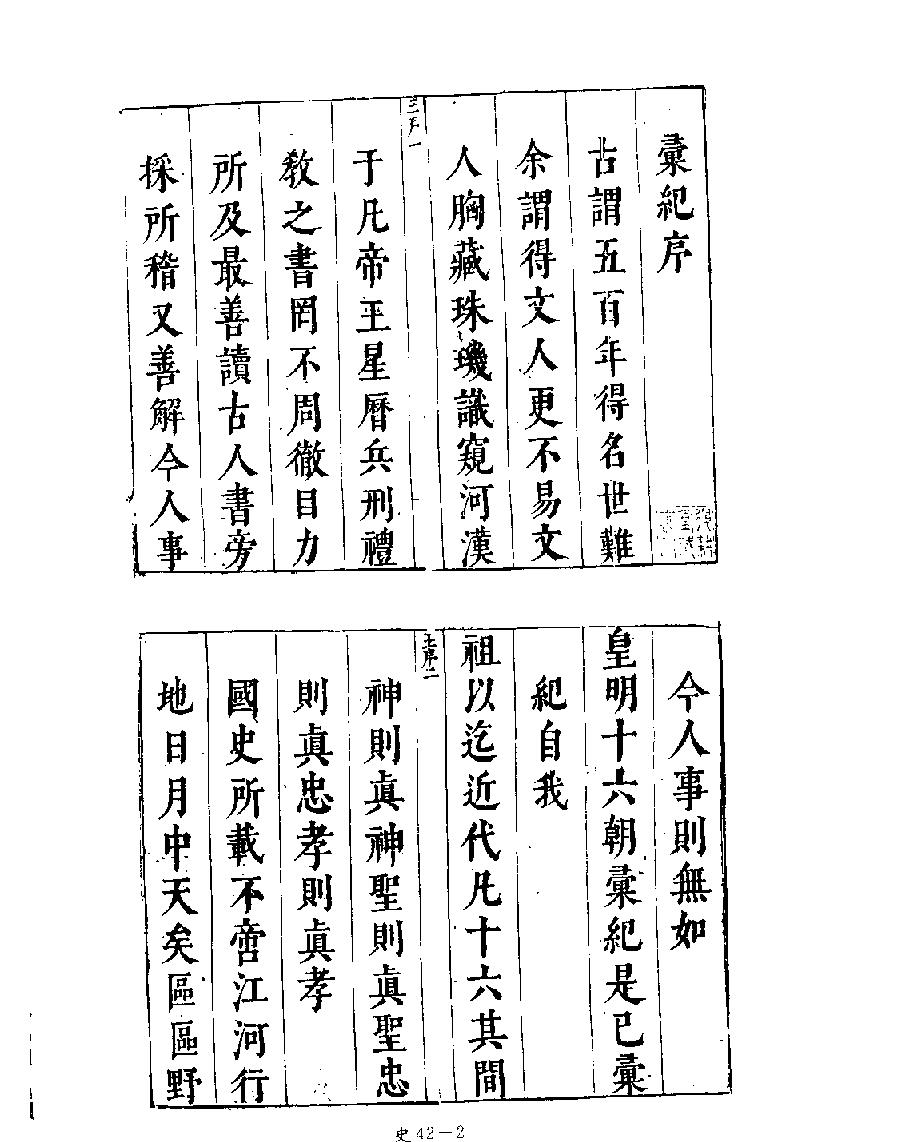 彙紀序
古謂五百年得名世難
余謂得文人更不易文
人胸藏珠璣識窺河漢
于凡帝王星曆兵刑禮
教之書罔不周徹目力
所及最善讀古人書旁
採所稽又善解今人事
今人事則無如
皇明十六朝彙紀是已彙
紀自我
祖以迄近代凡十六其間
神則眞神聖則眞聖忠
則眞忠孝則眞孝
國史所載不啻江河行
地日月中天矣區區野
史42－2